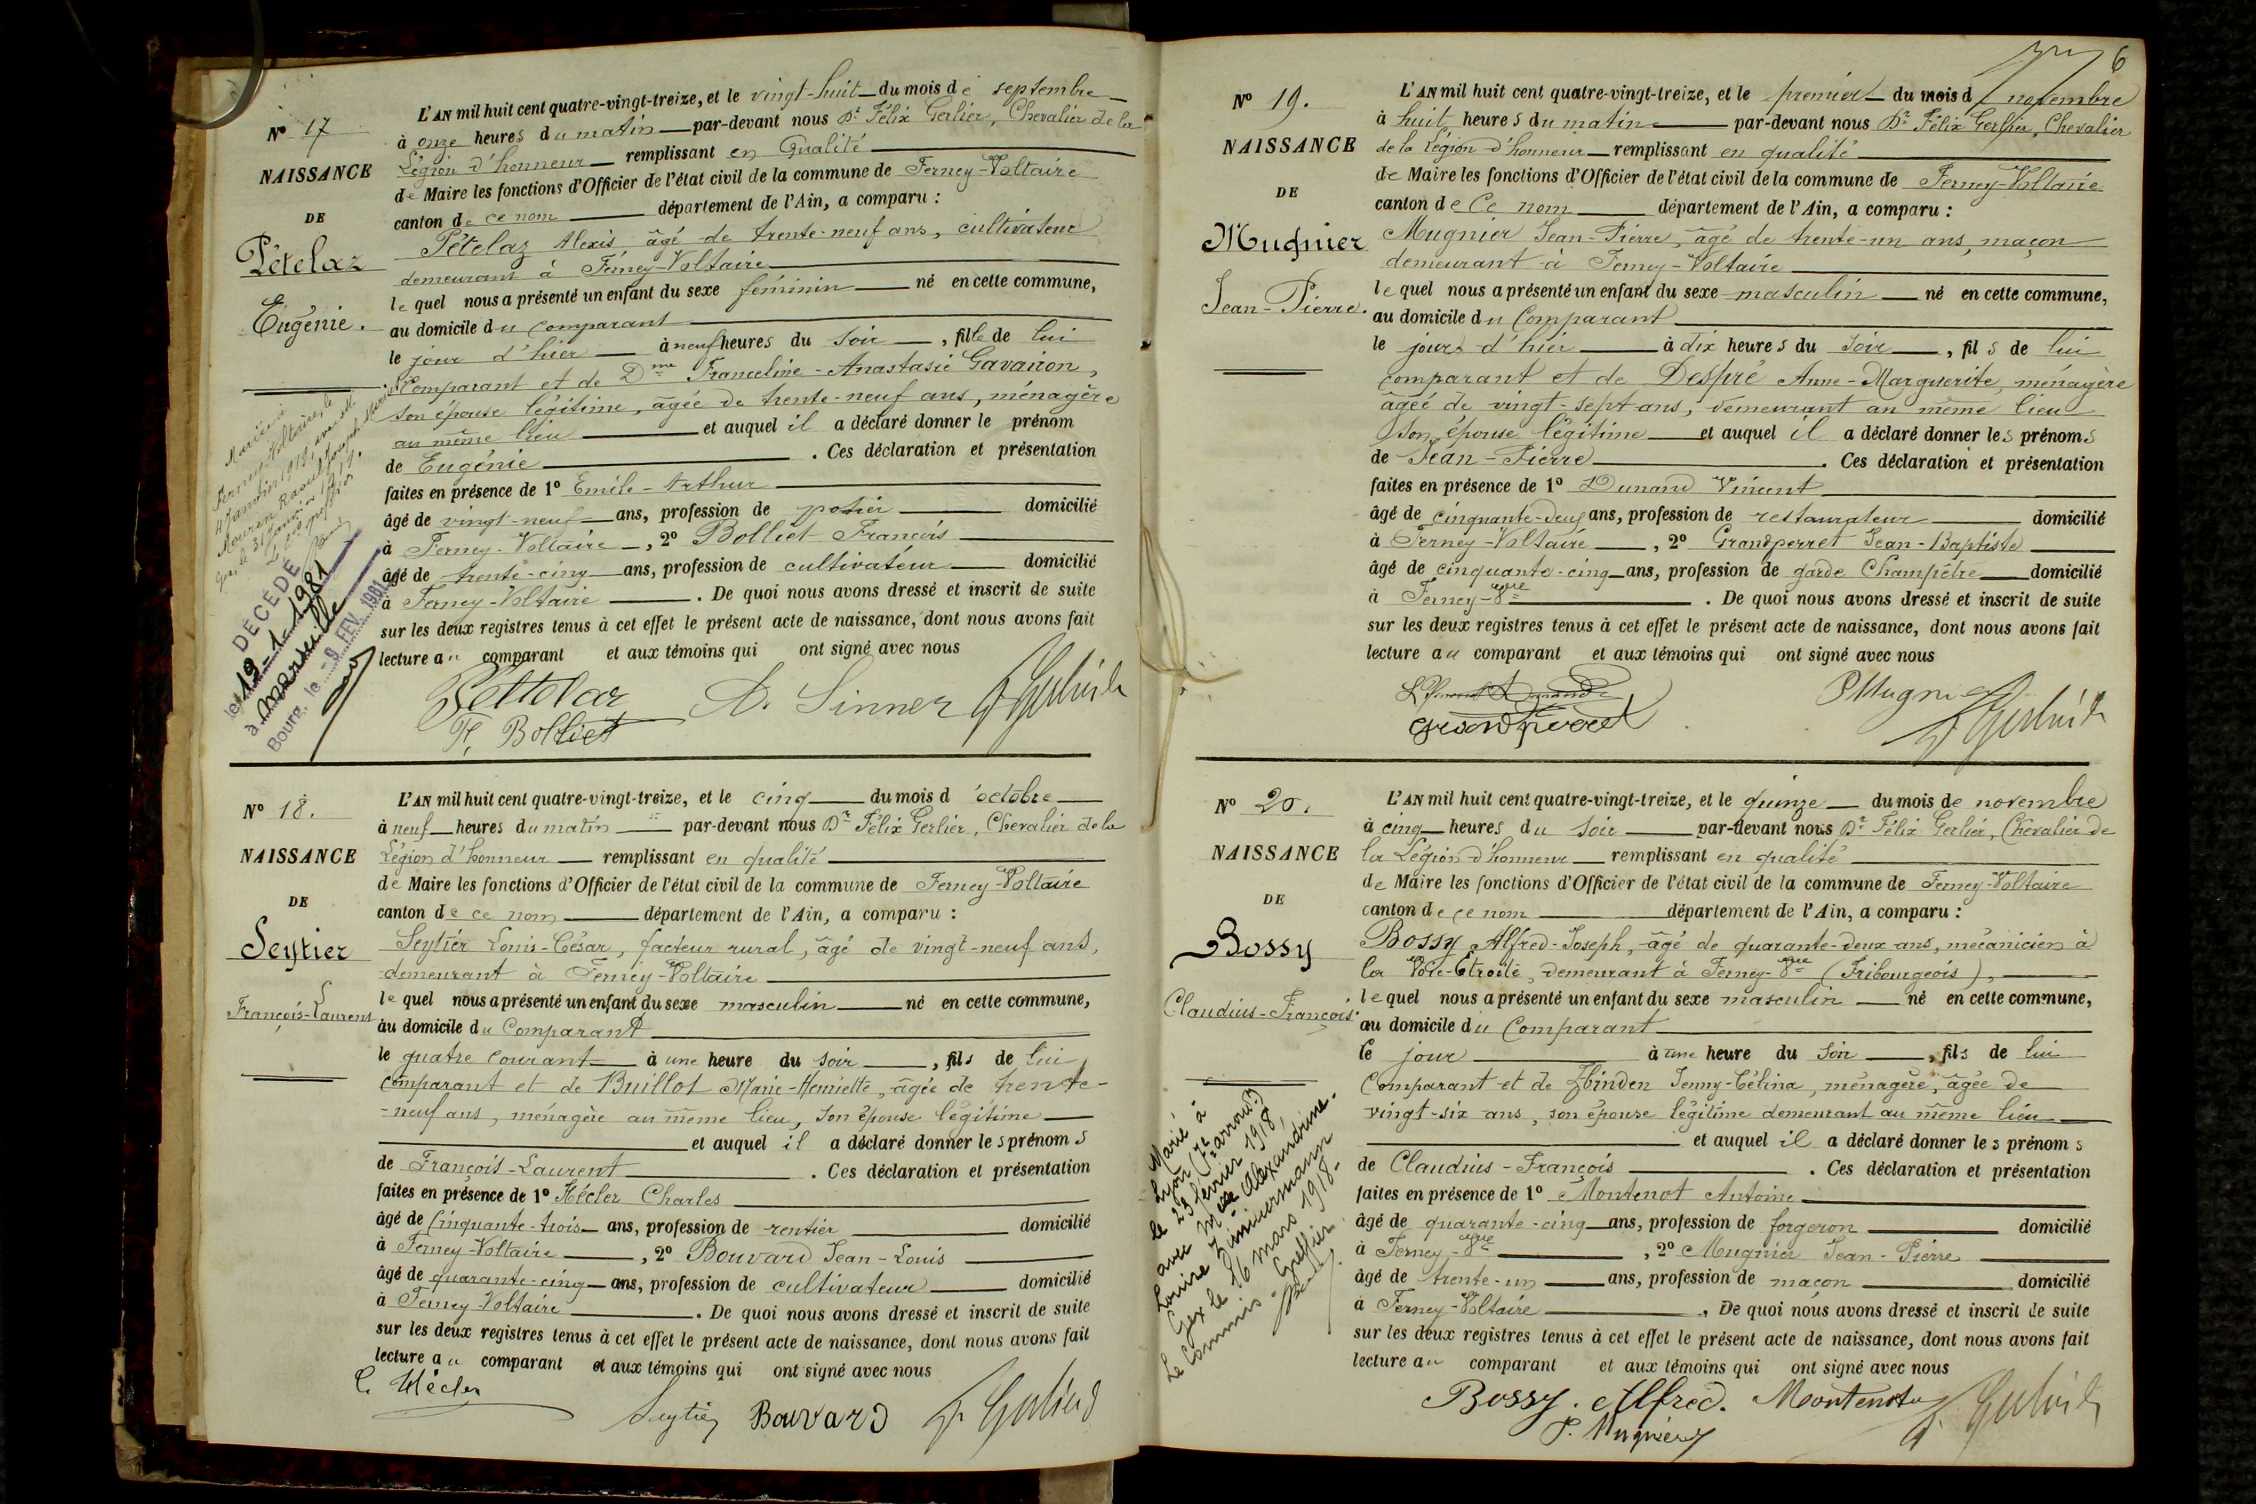 Nº 17
NAISSANCE
DE
Pételaz
Eugénie.
L'AN mil huit cent quatre-vingt-treize, et le vingt-huit du mois de septembre
à onze heures du matin par-devant nous Dr Félix Gerlier, Chevalier de la
Légion d'honneur remplissant en qualité
de Maire les fonctions d'Officier de l'état civil de la commune de Ferney-Voltaire
canton de ce nom département de l'Ain, a comparu :
Pételaz Alexis, âgé de trente-neuf ans, cultivateur
demeurant à Ferney-Voltaire
lequel nous a présenté un enfant du sexe féminin né en cette commune,
au domicile du comparant
le jour d'hier à neuf heures du soir, fille de lui
comparant et de Dme Franceline-Anastasie Gavairon,
son épouse légitime, âgée de trente-neuf ans, ménagère
au même lieu et auquel il a déclaré donner le prénom
de Eugénie. Ces déclaration et présentation
faites en présence de 1º Emile-Arthur
âgé de vingt-neuf ans, profession de potier domicilié
à Ferney-Voltaire, 2º Bolliet François
âgé de trente-cinq ans, profession de cultivateur domicilié
à Ferney-Voltaire. De quoi nous avons dressé et inscrit de suite
sur les deux registres tenus à cet effet le présent acte de naissance, dont nous avons fait
lecture au comparant et aux témoins qui ont signé avec nous
A. Sinner
F. Bolliet
Mariée à
Ferney-Voltaire, le
DÉCÉDÉ
le 19-1-1981
à Marseille
Bourg, le -9 FEV. 1981
Nº 18.
NAISSANCE
DE
Seytier
François-Laurent
L'AN mil huit cent quatre-vingt-treize, et le cinq du mois d'octobre
à neuf heures du matin par-devant nous Dr Félix Gerlier, Chevalier de la
Légion d'honneur remplissant en qualité
de Maire les fonctions d'Officier de l'état civil de la commune de Ferney-Voltaire
canton de ce nom département de l'Ain, a comparu :
Seytier Louis-César, facteur rural, âgé de vingt-neuf ans,
demeurant à Ferney-Voltaire
lequel nous a présenté un enfant du sexe masculin né en cette commune,
au domicile du Comparant
le quatre courant à une heure du soir, fils de lui
comparant et de Buillot Marie-Henriette, âgée de trente-
-neuf ans, ménagère au même lieu, son épouse légitime
et auquel il a déclaré donner les prénoms
de François-Laurent. Ces déclaration et présentation
faites en présence de 1º Hécler Charles
âgé de cinquante-trois ans, profession de rentier domicilié
à Ferney-Voltaire, 2º Bouvard Jean-Louis
âgé de quarante-cinq ans, profession de cultivateur domicilié
à Ferney-Voltaire. De quoi nous avons dressé et inscrit de suite
sur les deux registres tenus à cet effet le présent acte de naissance, dont nous avons fait
lecture au comparant et aux témoins qui ont signé avec nous
C. Hécler
Seytier Bouvard
6
Nº 19.
NAISSANCE
DE
Mugnier
Jean-Pierre.
L'AN mil huit cent quatre-vingt-treize, et le premier du mois de novembre
à huit heures du matin par-devant nous Dr Félix Gerlier, Chevalier
de la Légion d'honneur remplissant en qualité
de Maire les fonctions d'Officier de l'état civil de la commune de Ferney-Voltaire
canton de Ce nom département de l'Ain, a comparu :
Mugnier Jean-Pierre, âgé de trente-un ans, maçon
demeurant à Ferney-Voltaire
lequel nous a présenté un enfant du sexe masculin né en cette commune,
au domicile du Comparant
le jour d'hier à dix heures du soir, fils de lui
comparant et de Despré Anne-Marguerite, ménagère
âgée de vingt-sept ans, demeurant au même lieu
son épouse légitime et auquel il a déclaré donner les prénoms
de Jean-Pierre. Ces déclaration et présentation
faites en présence de 1º Dunand Vincent
âgé de cinquante-deux ans, profession de restaurateur domicilié
à Ferney-Voltaire, 2º Grandperret Jean-Baptiste
âgé de cinquante-cinq ans, profession de garde Champêtre domicilié
à Ferney-Vre. De quoi nous avons dressé et inscrit de suite
sur les deux registres tenus à cet effet le présent acte de naissance, dont nous avons fait
lecture au comparant et aux témoins qui ont signé avec nous
Grandperret
Nº 20.
NAISSANCE
DE
Bossy
Claudius-François.
L'AN mil huit cent quatre-vingt-treize, et le quinze du mois de novembre
à cinq heures du soir par-devant nous Dr Félix Gerlier, Chevalier de
la Légion d'honneur remplissant en qualité
de Maire les fonctions d'Officier de l'état civil de la commune de Ferney-Voltaire
canton de ce nom département de l'Ain, a comparu :
Bossy Alfred-Joseph, âgé de quarante-deux ans, mécanicien à
la Voie-Etroite, demeurant à Ferney-Vre (Fribourgeois),
lequel nous a présenté un enfant du sexe masculin né en cette commune,
au domicile du Comparant
le jour à une heure du soir, fils de lui
Comparant et de Zbinden Jenny-Célina, ménagère, âgée de
vingt-six ans, son épouse légitime demeurant au même lieu
et auquel il a déclaré donner les prénoms
de Claudius-François. Ces déclaration et présentation
faites en présence de 1º Montenot Antoine
âgé de quarante-cinq ans, profession de forgeron domicilié
à Ferney-Vre, 2º Mugnier Jean-Pierre
âgé de trente-un ans, profession de maçon domicilié
à Ferney-Voltaire. De quoi nous avons dressé et inscrit de suite
sur les deux registres tenus à cet effet le présent acte de naissance, dont nous avons fait
lecture au comparant et aux témoins qui ont signé avec nous
Bossy. Alfred. Montenot
P. Mugnier
Marié à
Lyon (7e arrond.)
le 23 février 1918,
avec Melle Alexandrine-
Louise Zimmermann
Gex le 16 mars 1918-
Le Commis-Greffier